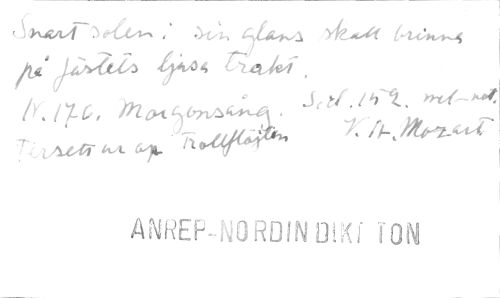 Snart solen i sin glans skall brinna
på fästets ljusa trakt.
N. 176. Morgonsång. S.d. 152. mel-not.
Tersett ur op Trollflöjten V. A. Mozart
ANREP-NORDIN DIKT TON